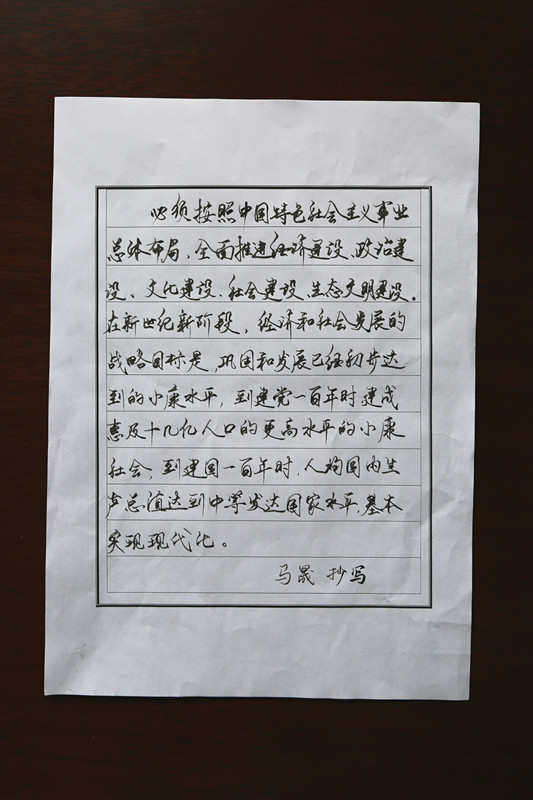 必须按照中国特色社会主义事业
总体布局，全面推进经济建设、政治建
设、文化建设、社会建设、生态文明建设。
在新世纪新阶段，经济和社会发展的
战略目标是，巩固和发展已经初步达
到的小康水平，到建党一百年时建成
惠及十几亿人口的更高水平的小康
社会，到建国一百年时，人均国内生
产总值达到中等发达国家水平，基本
实现现代化。
马晟 抄写